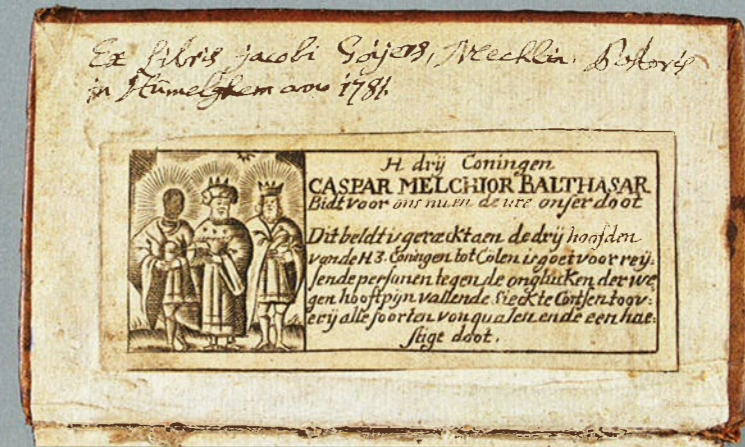 Ex Libris jacobi Goÿers, Mechlin. Pastoris
in Humelghem anno 1781
H. drÿ Coningen
CASPAR MELCHIOR BALTHASAR
Bidt voor ons nu en de ure onser doot
Dit beldt is geraeckt aen de drÿ hoofden
van de H. 3. Coningen tot Colen is goet voor reÿ-
sende persunen tegen de onglucken der we
gen hooftpÿn vallende Sieckte Cortsen toov-
erÿ alle soorten von qualen ende een hae-
stige doot.